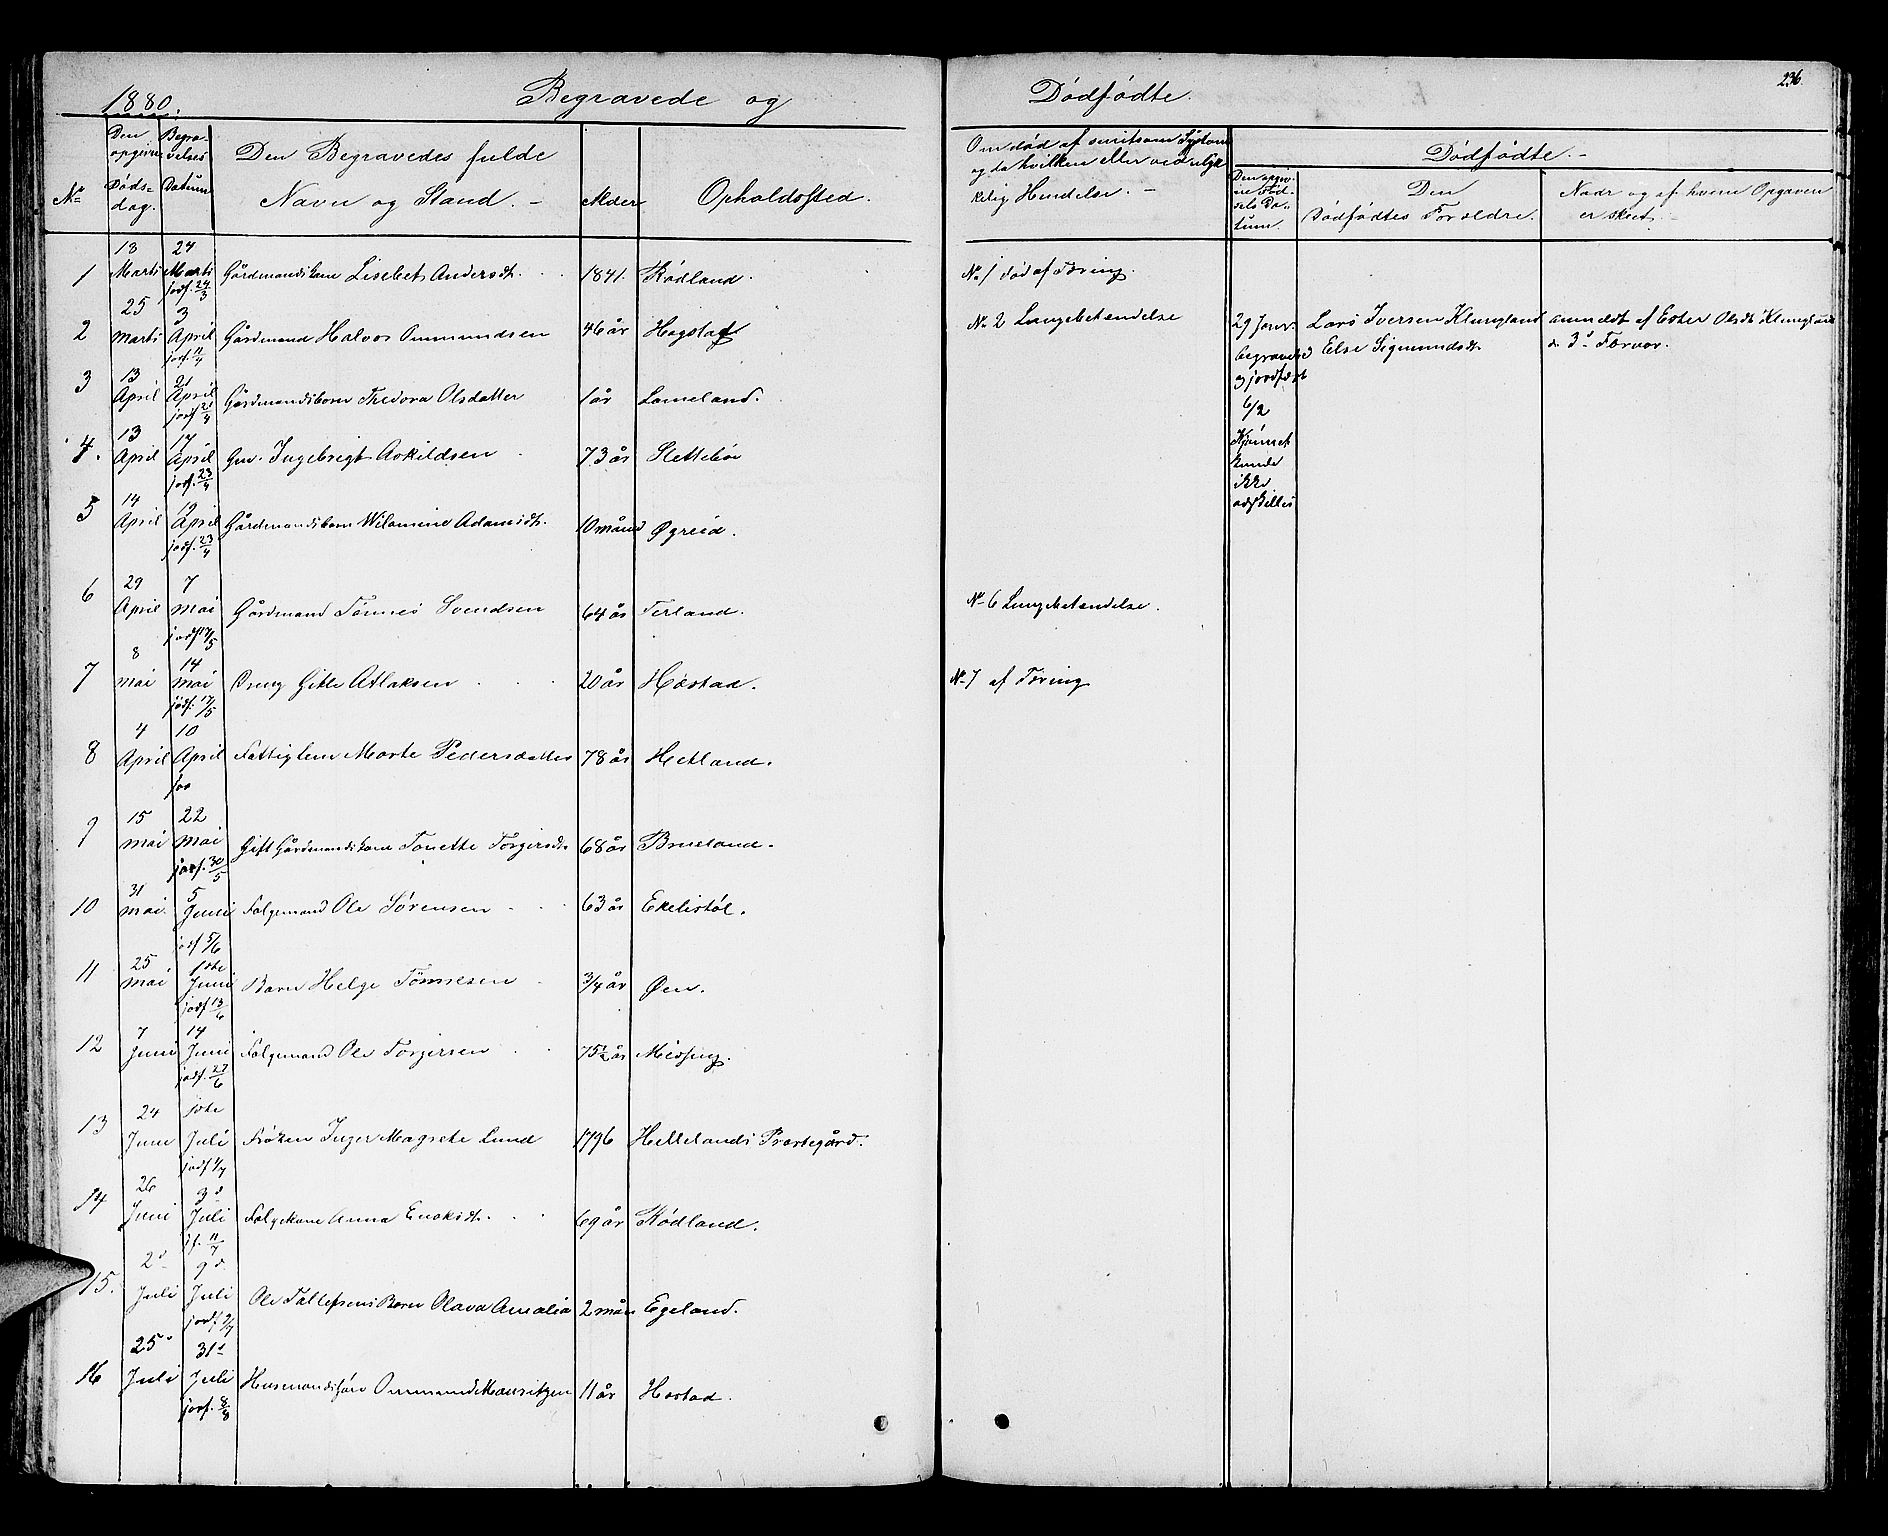 1880.
Begravede og
Dødfødte.
236.
No
Den opgivne Døds-dag.
Begra-velses Datum
Den Begravedes fulde
Navn og Stand. -
Alder
Opholdssted.
Om død af smitsom Sygdom
og da hvilken eller ved ulyk-
kelig Hendelse. -
Dødfødte. -
Den opgiv-ne Fød-sels Da-tum.
Den
Dødfødtes Forældre.
Naar og af hvem Opgaven
er skeet.
1 13 Marts 24 Marts jodf. 24/3 Gårdmandskone Lisebet Andersdt. 1841. Rødland. No 1 død af Tæring.
2 25 Marts 3 April jodf. 11/4 Gårdmand Halvor Ommundsen 46 år Hogstad No 2 Lungebetændelse
29 Janr. begravet 3 jordfæst 6/2 Kjønnet kunde ikke adskilles
Lars Iversen Klungland
Else Sigmundsdt.
anmeldt af Ester Olsdt Klungland
d. 3d Februar.
3 13 April 21 April jodf 21/4 Gårdmandsbarn Thedora Olsdatter 1 år Lomeland.
4. 13 April 17 April jodf. 23/4 Gm. Ingebrigt Askildsen 73 år Slettebøe
5 14 April 19 April jodf. 23/4 Gårdmandsbarn Wilamine Adamsdt. 10 månd Øgreid.
6 29 April 7 Mai jodf 17/5 Gårdmand Tønnes Svendsen 64 år Terland. No 6 Lungebetændelse.
7 8 Mai 14 Mai jodf. 17/5 Dreng Gitle Atlaksen 20 år Hæstad. No 7 af Tæring
8 4 April 10 April Fattiglem Marte Pedersdatter 78 år Hetland.
9 15 Mai 22 Mai jodf. 30/5 Gift Gårdmandskone Tonette Torgersdt. 68 år Brueland.
10 31 Mai. 5 Juni jodf 5/6 Folgemand Ole Sørensen 63 år Ekelistøl.
11 25 Mai 1ste Juni jodf 13/6 Barn Helge Tønnesen 3/4 år Øen.
12 7 Juni 14 Juni jodf. 27/6 Folgemand Ole Torgersen 75 1/2 år Mydsing.
13 24 Juni 1ste Juli jodf 1/7 Frøken Inger Magrete Lund 1796 Hellelands Præstegård.
14 26 Juni 3d Juli jf. 11/7 Folgekone Anna Enoksdt. 69 år Rødland.
15. 2d Juli 9d. Juli jodf 9/7 Ole Tallefsens Barn Olava Amalia 2 mån Egeland.
16 25d Juli 31t Juli jodf. 8/8 Husmandssøn Ommund Mauritzen 11 år Hæstad.